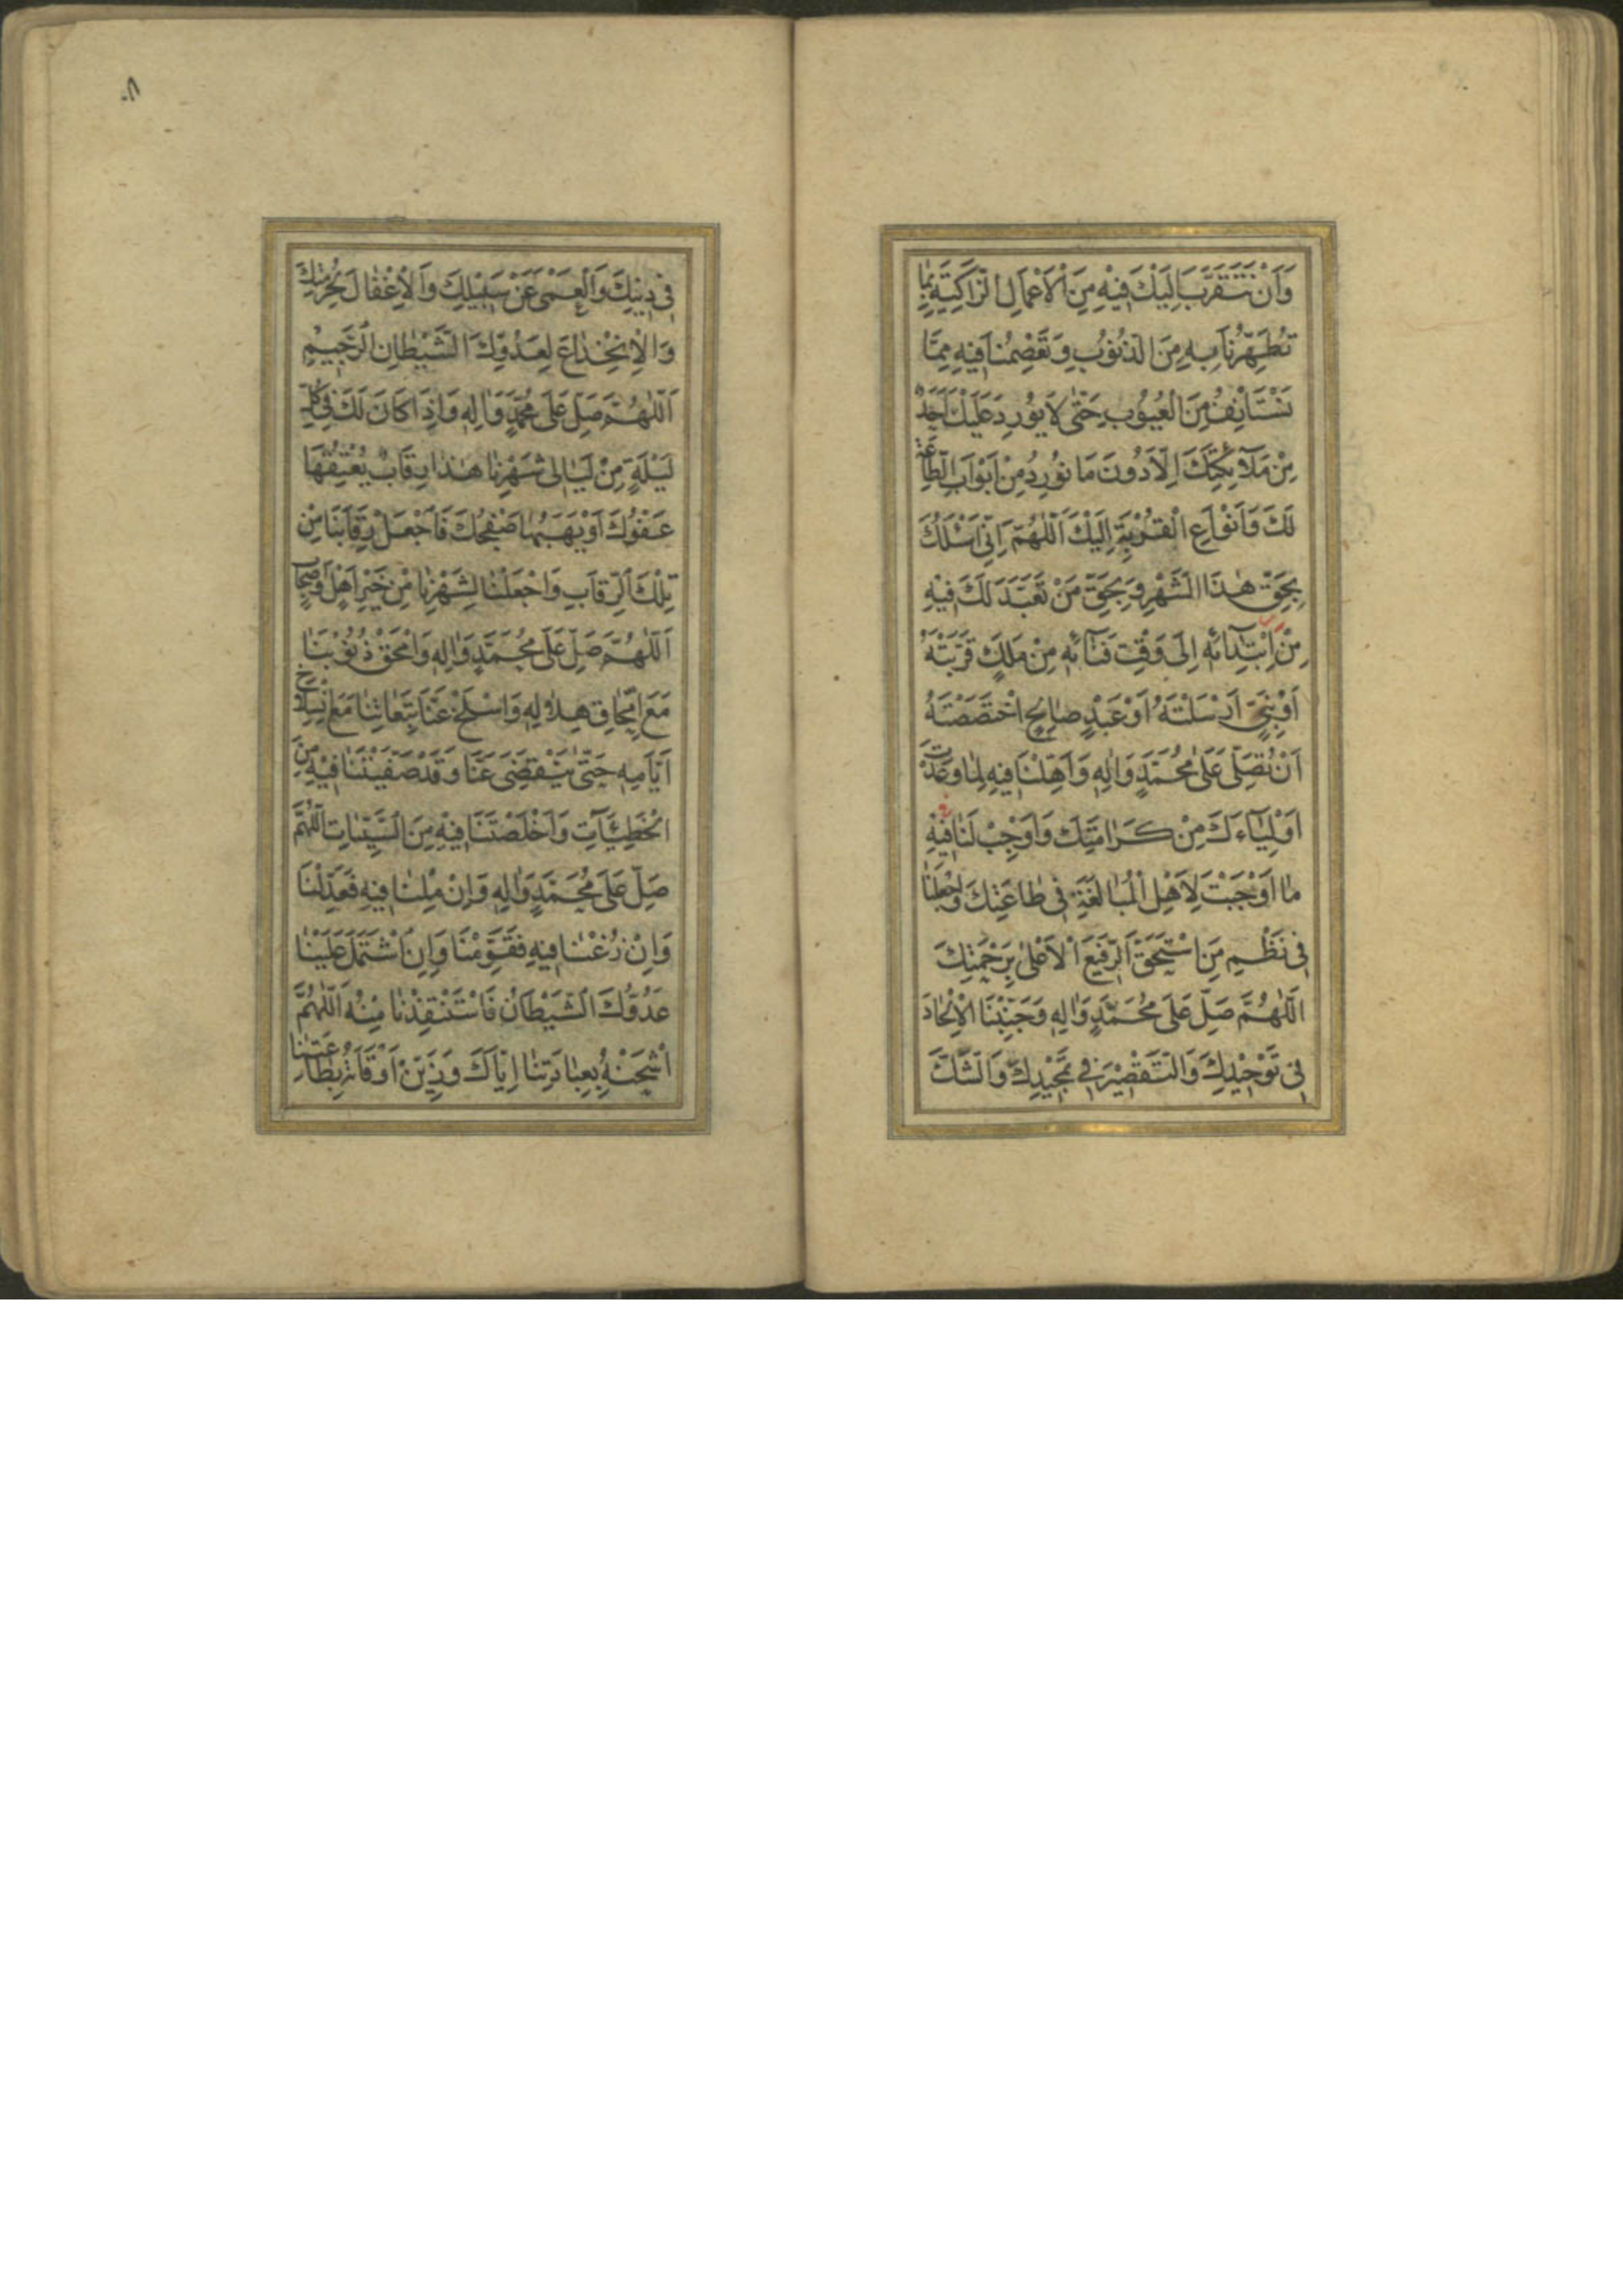 وَاَنْ نَتَقَرَّبَ اِلَيْكَ فِيْهِ مِنَ الْاَعْمَالِ الزَّاكِيَةِ بِمَا
تُطَهِّرُنَا بِهِ مِنَ الذُّنُوْبِ وَتَعْصِمُنَا فِيْهِ مِمَّا
نَسْتَأْنِفُ مِنَ الْعُيُوْبِ حَتّٰى لَا يُوْرِدَ عَلَيْكَ اَحَدٌ
مِنْ مَلَآئِكَتِكَ اِلَّا دُوْنَ مَا نُوْرِدُ مِنْ اَبْوَابِ الطَّاعَةِ
لَكَ وَاَنْوَاعِ الْقُرْبَةِ اِلَيْكَ اَللّٰهُمَّ اِنِّيْ اَسْئَلُكَ
بِحَقِّ هٰذَا الشَّهْرِ وَبِحَقِّ مَنْ تَعَبَّدَ لَكَ فِيْهِ
مِنْ اِبْتِدَآئِهِ اِلٰى وَقْتِ فَنَآئِهِ مِنْ مَلَكٍ قَرَّبْتَهُ
اَوْ نَبِيٍّ اَرْسَلْتَهُ اَوْ عَبْدٍ صَالِحٍ اخْتَصَصْتَهُ
اَنْ تُصَلِّيَ عَلٰى مُحَمَّدٍ وَاٰلِهِ وَاَهِّلْنَا فِيْهِ لِمَا وَعَدْتَ
اَوْلِيَآءَكَ مِنْ كَرَامَتِكَ وَاَوْجِبْ لَنَا فِيْهِ
مَا اَوْجَبْتَ لِاَهْلِ الْمُبَالَغَةِ فِيْ طَاعَتِكَ وَاجْعَلْنَا
فِيْ نَظْمِ مَنِ اسْتَحَقَّ الرَّفِيْعَ الْاَعْلٰى بِرَحْمَتِكَ
اَللّٰهُمَّ صَلِّ عَلٰى مُحَمَّدٍ وَاٰلِهِ وَجَنِّبْنَا الْاِلْحَادَ
فِيْ تَوْحِيْدِكَ وَالتَّقْصِيْرَ فِيْ تَمْجِيْدِكَ وَالشَّكَّ
فِيْ دِيْنِكَ وَالْعَمٰى عَنْ سَبِيْلِكَ وَالْاِغْفَالَ لِحُرْمَتِكَ
وَالْاِنْخِدَاعَ لِعَدُوِّكَ الشَّيْطَانِ الرَّجِيْمِ
اَللّٰهُمَّ صَلِّ عَلٰى مُحَمَّدٍ وَاٰلِهِ وَاِذَا كَانَ لَكَ فِيْ كُلِّ
لَيْلَةٍ مِنْ لَيَالِيْ شَهْرِنَا هٰذَا رِقَابٌ يُعْتِقُهَا
عَفْوُكَ اَوْ يَهَبُهَا صَفْحُكَ فَاجْعَلْ رِقَابَنَا مِنْ
تِلْكَ الرِّقَابِ وَاجْعَلْنَا لِشَهْرِنَا مِنْ خَيْرِ اَهْلٍ وَاَصْحَابٍ
اَللّٰهُمَّ صَلِّ عَلٰى مُحَمَّدٍ وَاٰلِهِ وَامْحَقْ ذُنُوْبَنَا
مَعَ اِمِّحَاقِ هِلَالِهِ وَاسْلَخْ عَنَّا تَبِعَاتِنَا مَعَ انْسِلَاخِ
اَيَّامِهِ حَتّٰى يَنْقَضِيَ عَنَّا وَقَدْ صَفَّيْتَنَا فِيْهِ مِنَ
الْخَطِيْئَآتِ وَاَخْلَصْتَنَا فِيْهِ مِنَ السَّيِّئَاتِ اَللّٰهُمَّ
صَلِّ عَلٰى مُحَمَّدٍ وَاٰلِهِ وَاِنْ مِلْنَا فِيْهِ فَعَدِّلْنَا
وَاِنْ زُغْنَا فِيْهِ فَقَوِّمْنَا وَاِنِ اشْتَمَلَ عَلَيْنَا
عَدُوُّكَ الشَّيْطَانُ فَاسْتَنْقِذْنَا مِنْهُ اَللّٰهُمَّ
اشْحَنْهُ بِعِبَادَتِنَا اِيَّاكَ وَزَيِّنْ اَوْقَاتَهُ بِطَاعَتِنَا